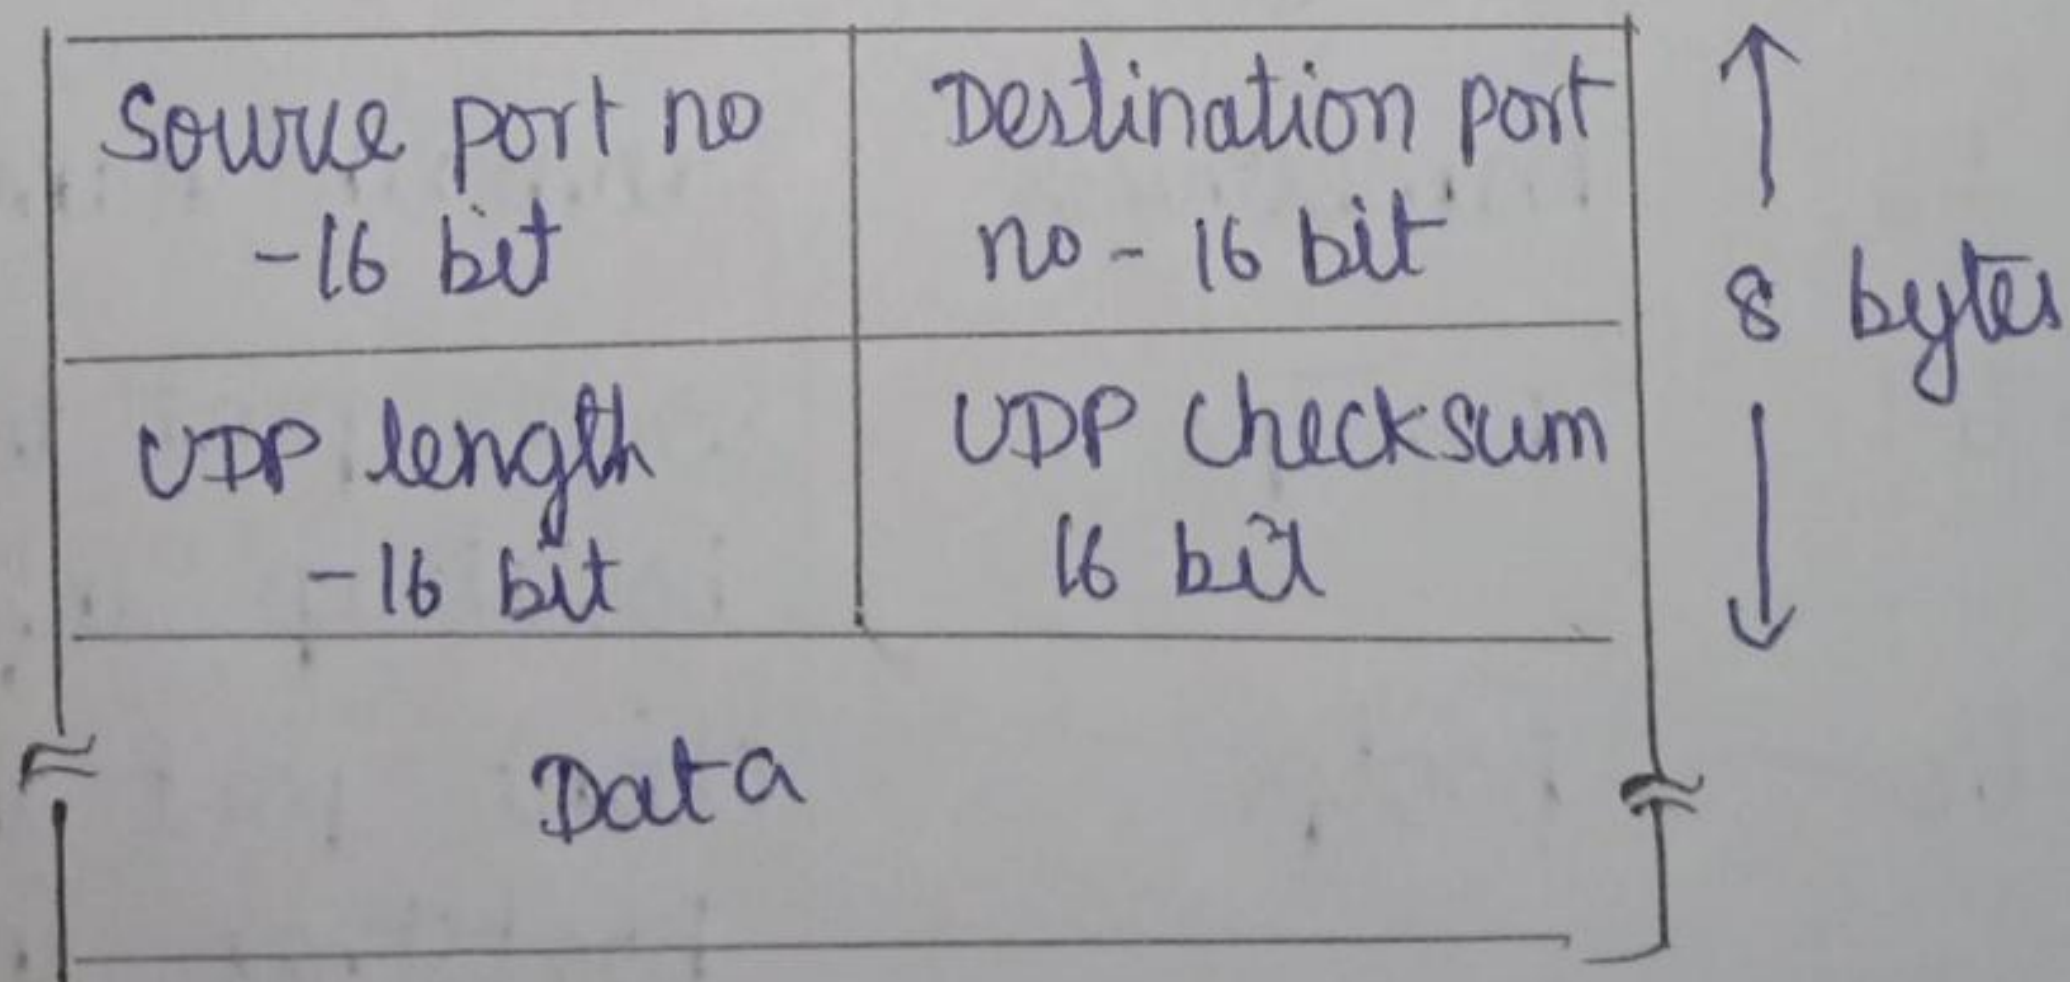 Source port no
-16 bit
Destination port
no - 16 bit
8 bytes
UDP length
-16 bit
UDP checksum
16 bit
Data